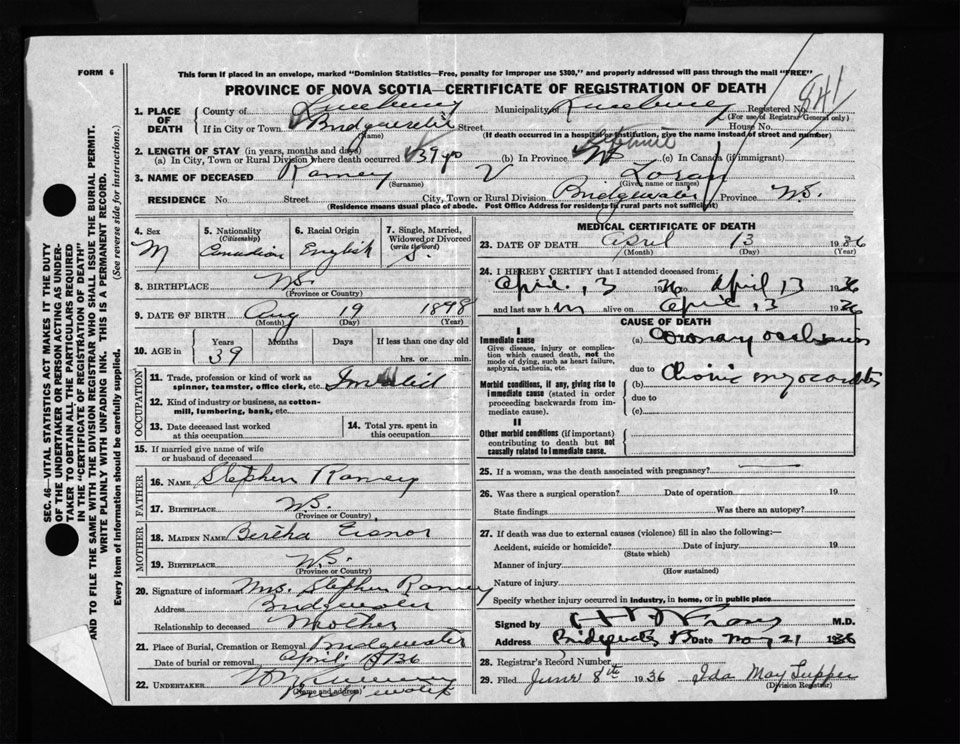 FORM 6
This form if placed in an envelope, marked "Dominion Statistics—Free, penalty for improper use $300," and properly addressed will pass through the mail "FREE"
PROVINCE OF NOVA SCOTIA—CERTIFICATE OF REGISTRATION OF DEATH
1. PLACE OF DEATH County of Lunenburg Municipality of Lunenburg Registered No. 841
(For use of Registrar General only)
If in City or Town Bridgewater Street House No.
(Name) (If death occurred in a hospital or institution, give name instead of street and number)
2. LENGTH OF STAY (in years, months and days)
(a) In City, Town or Rural Division where death occurred 39 yrs (b) In Province NS (c) In Canada (if immigrant)
3. NAME OF DECEASED Ramey Loran
(Surname) (Given name or names)
RESIDENCE No. Street City, Town or Rural Division Bridgewater Province N.S.
(Residence means usual place of abode. Post Office Address for residents of rural parts not sufficient)
4. Sex M
5. Nationality (Citizenship) Canadian
6. Racial Origin English
7. Single, Married, Widowed or Divorced (write the word) S.
8. BIRTHPLACE N.S.
(Province or Country)
9. DATE OF BIRTH Aug 19 1898
(Month) (Day) (Year)
10. AGE in Years Months Days If less than one day old
39 hrs. or min.
OCCUPATION
11. Trade, profession or kind of work as spinner, teamster, office clerk, etc. Invalid
12. Kind of industry or business, as cotton-mill, lumbering, bank, etc.
13. Date deceased last worked at this occupation
14. Total yrs. spent in this occupation
15. If married give name of wife or husband of deceased
FATHER
16. NAME Stephen Ramey
17. BIRTHPLACE N.S.
(Province or Country)
MOTHER
18. MAIDEN NAME Bertha
19. BIRTHPLACE N.S.
(Province or Country)
20. Signature of informant Mrs. Stephen Ramey
Address Bridgewater
Relationship to deceased Mother
21. Place of Burial, Cremation or Removal Bridgewater
Date of burial or removal April 36
22. UNDERTAKER
(Name and address)
MEDICAL CERTIFICATE OF DEATH
23. DATE OF DEATH April 13 1936
(Month) (Day) (Year)
24. I HEREBY CERTIFY that I attended deceased from:
April 13 1936 to April 13 1936
and last saw h im alive on April 13 1936
CAUSE OF DEATH
I
Immediate cause
Give disease, injury or complication which caused death, not the mode of dying, such as heart failure, asphyxia, asthenia, etc.
(a) Coronary occlusion
due to
Morbid conditions, if any, giving rise to immediate cause (stated in order proceeding backwards from immediate cause).
(b) Chronic myocarditis
due to
(c)
II
Other morbid conditions (if important) contributing to death but not causally related to immediate cause.
25. If a woman, was the death associated with pregnancy?
26. Was there a surgical operation? Date of operation 19
State findings Was there an autopsy?
27. If death was due to external causes (violence) fill in also the following:—
Accident, suicide or homicide? Date of injury 19
(State which)
Manner of injury
(How sustained)
Nature of injury
Specify whether injury occurred in industry, in home, or in public place
Signed by M.D.
Address Bridgewater Date May 21 1936
28. Registrar's Record Number
29. Filed June 8th 1936 Ida May Tupper
(Division Registrar)
SEC. 46—VITAL STATISTICS ACT MAKES IT THE DUTY
OF THE UNDERTAKER OR PERSON ACTING AS UNDER-
TAKER TO OBTAIN ALL THE PARTICULARS REQUIRED
IN THE "CERTIFICATE OF REGISTRATION OF DEATH"
AND TO FILE THE SAME WITH THE DIVISION REGISTRAR WHO SHALL ISSUE THE BURIAL PERMIT.
WRITE PLAINLY WITH UNFADING INK. THIS IS A PERMANENT RECORD.
Every item of information should be carefully supplied. (See reverse side for instructions.)